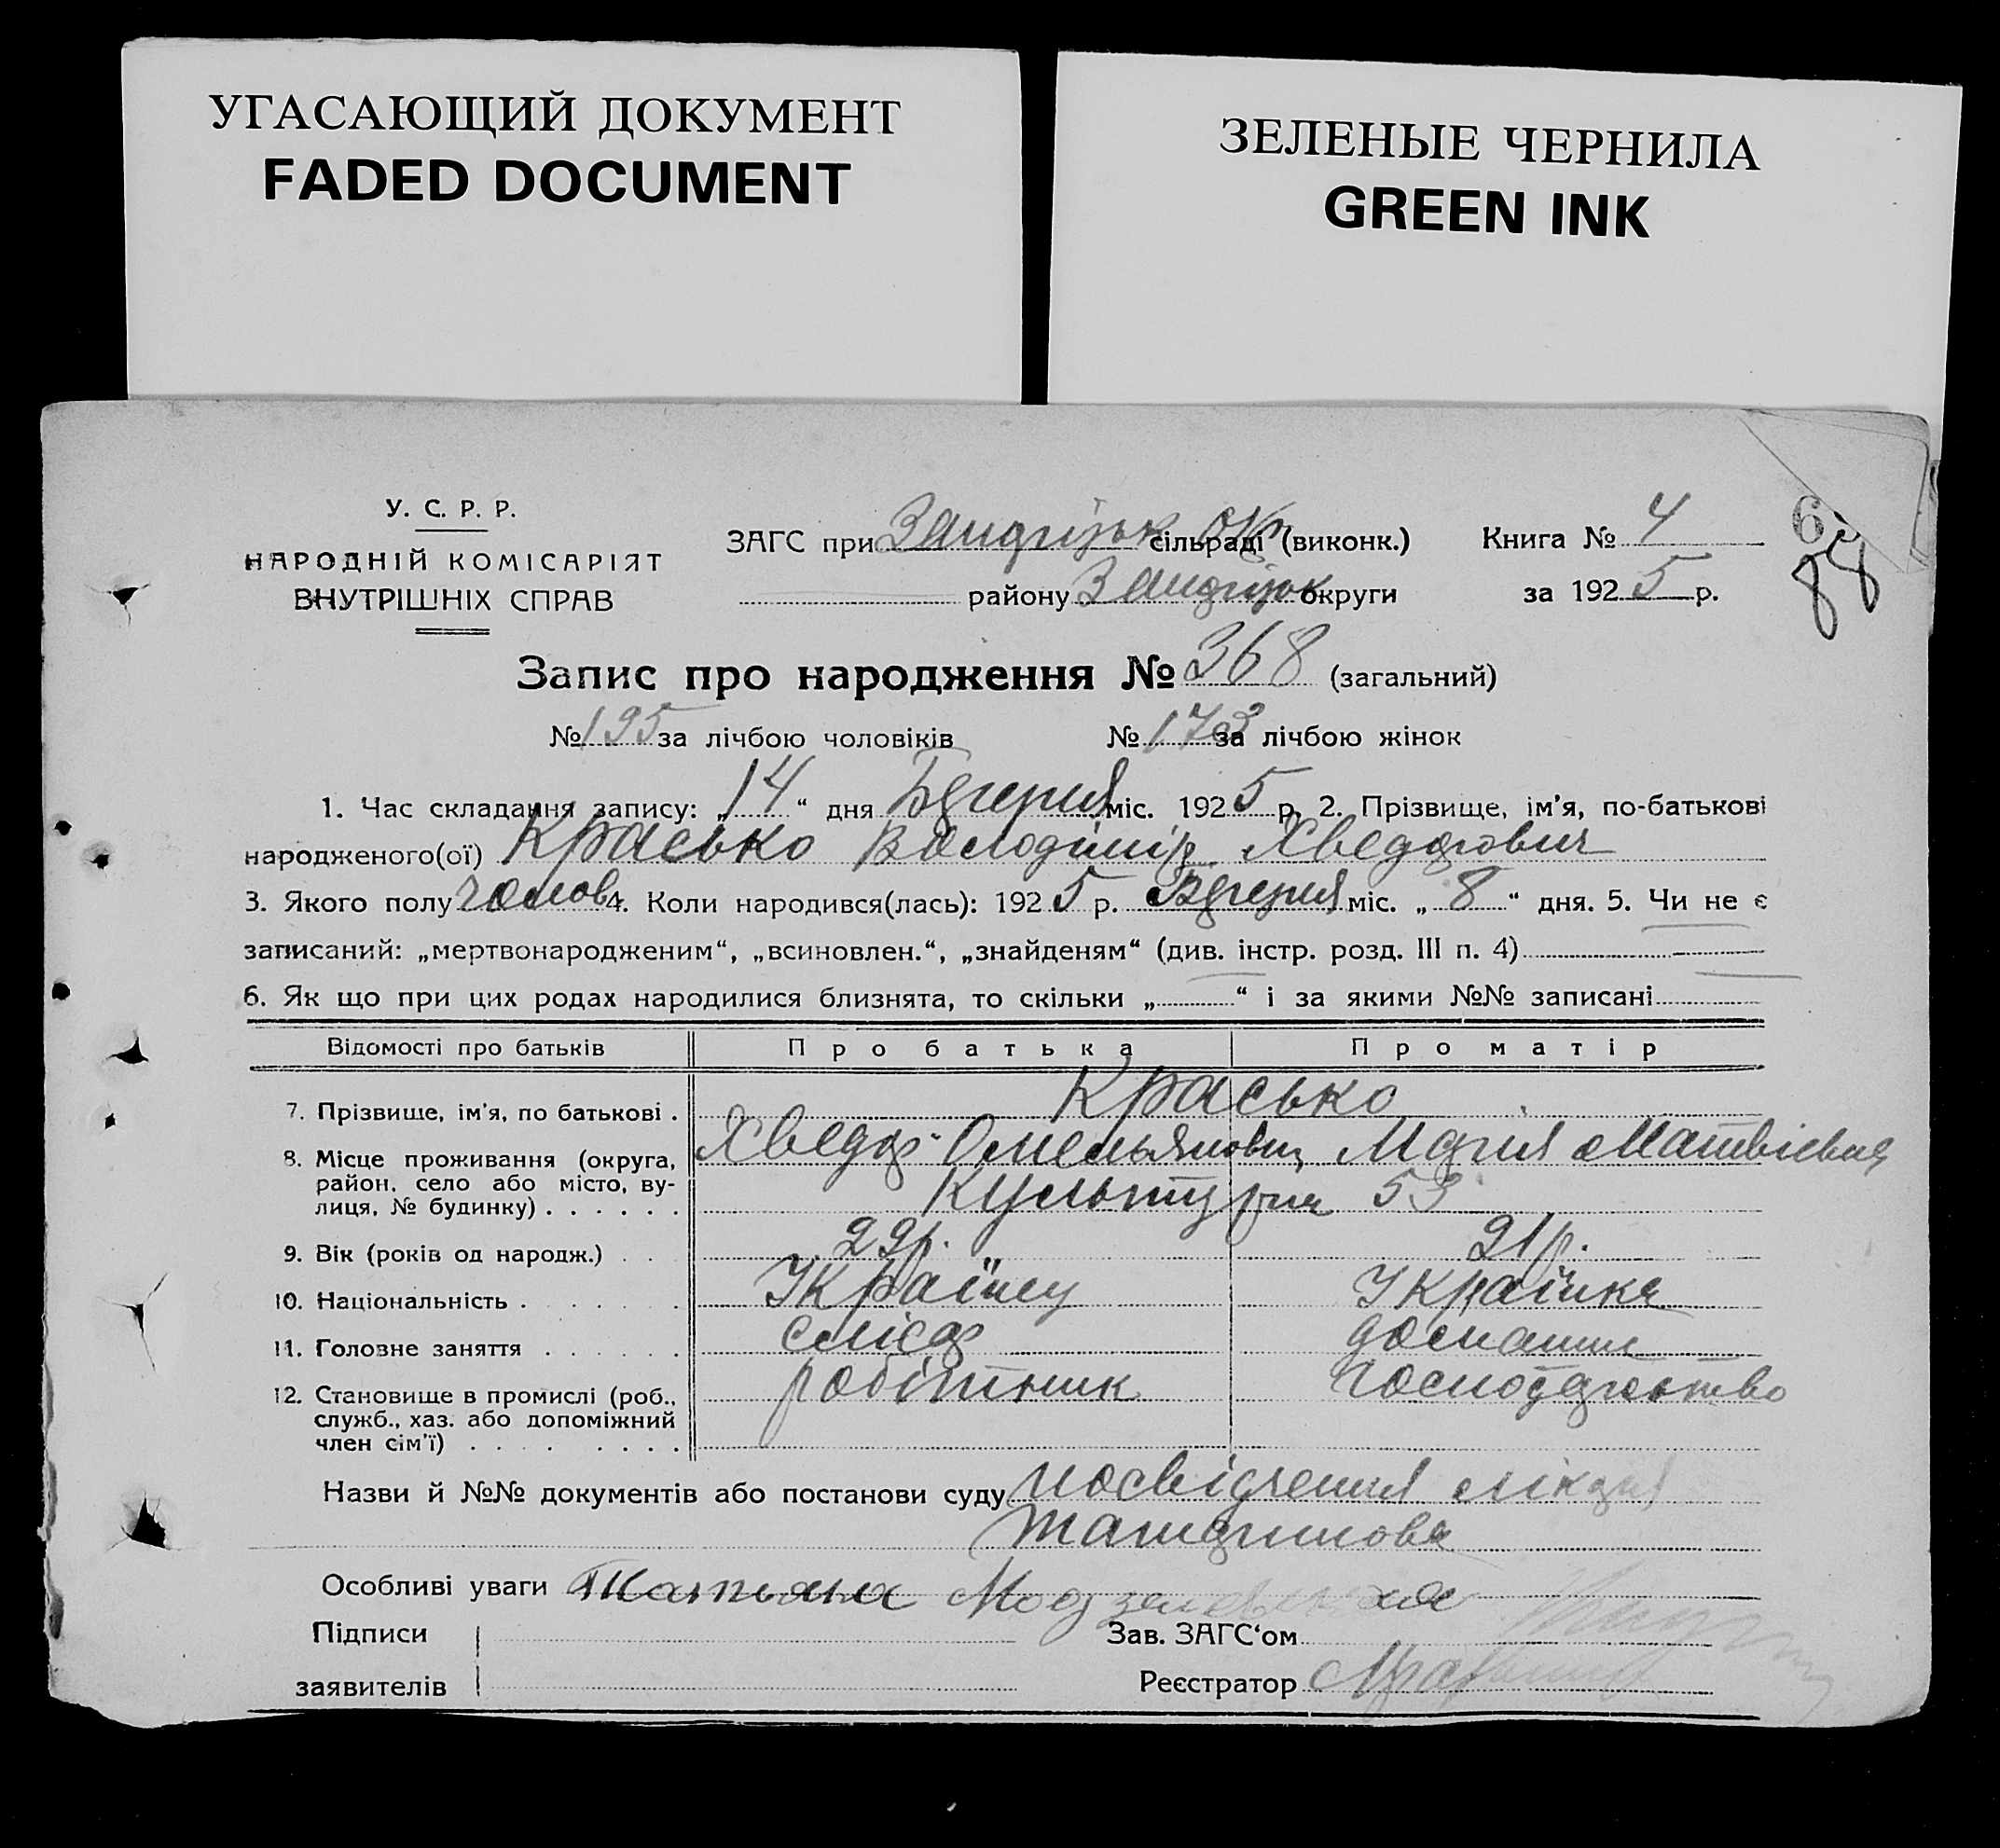 УГАСАЮЩИЙ ДОКУМЕНТ
FADED DOCUMENT
ЗЕЛЕНЫЕ ЧЕРНИЛА
GREEN INK
У. С. Р. Р.
НАРОДНІЙ КОМІСАРІЯТ
ВНУТРІШНІХ СПРАВ
ЗАГС при сільраді (виконк.)
району округи
Книга № 4
за 1925 р.
88
Запис про народження № 368 (загальний)
№ 195 за лічбою чоловіків № 173 за лічбою жінок
1. Час складання запису: „14“ дня Березня міс. 1925 р. 2. Прізвище, ім'я, по-батькові
народженого(ої) Красько Володімір Хведорович
3. Якого полу чолов. 4. Коли народився(лась): 1925 р. Березня міс. „8“ дня. 5. Чи не є
записаний: „мертвонародженим“, „всиновлен.“, „знайденям“ (див. інстр. розд. III п. 4)
6. Як що при цих родах народилися близнята, то скільки „ “ і за якими №№ записані
Відомості про батьків Про батька Про матір
7. Прізвище, ім'я, по батькові . Красько
Хведор Омельянович Мария Матвієвна
8. Місце проживання (округа, район, село або місто, вулиця, № будинку) . . . . . . Культурна 53
9. Вік (років од народж.) . . 29р. 21р.
10. Національність . . . . . . Українец Українка
11. Головне заняття . . . . . . слюсар домашнє
12. Становище в промислі (роб., служб., хаз. або допоміжний член сім'ї) . . . . . . . робітник господарство
Назви й №№ документів або постанови суду посвідчення лікаря
Особливі уваги Татьяна
Підписи
заявителів
Зав. ЗАГС'ом
Реєстратор